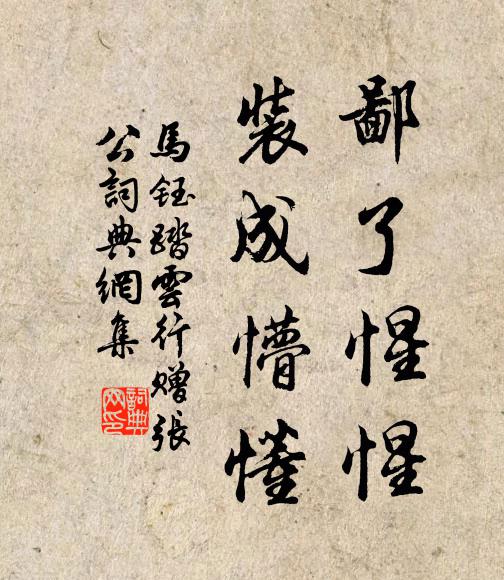 鄙了惺惺
装成懵懂
馬鈺踏雲行赠張
公詞典網集
詞典網印